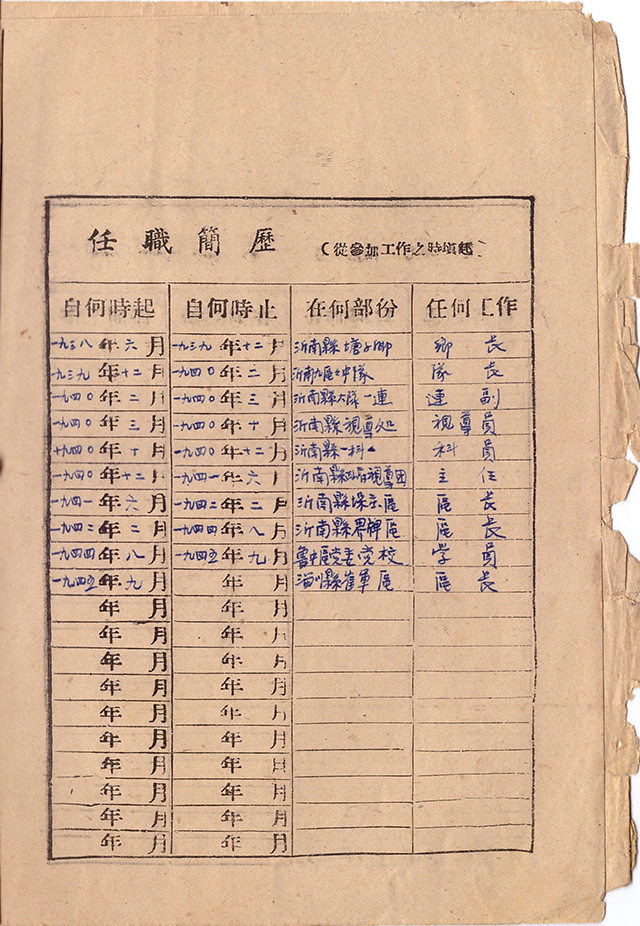 任職簡歷 (從參加工作之時填起)
自何時起 自何時止 在何部份 任何工作
一九三八年六月 一九三九年十二月 沂南縣塘子鄉 鄉長
一九三九年十二月 一九四〇年二月 沂南九區中隊 隊長
一九四〇年二月 一九四〇年三月 沂南縣大隊一連 連副
一九四〇年三月 一九四〇年十月 沂南縣視導处 視導員
一九四〇年十月 一九四〇年十二月 沂南縣一科 科員
一九四〇年十二月 一九四一年六月 沂南縣視導团 主任
一九四一年六月 一九四二年二月 沂南縣保庄區 區長
一九四二年二月 一九四四年八月 沂南縣界牌區 區長
一九四四年八月 一九四五年九月 魯中區党委党校 学員
一九四五年九月 年 月 淄川縣崔軍區 區長
年 月 年 月
年 月 年 月
年 月 年 月
年 月 年 月
年 月 年 月
年 月 年 月
年 月 年 月
年 月 年 月
年 月 年 月
年 月 年 月